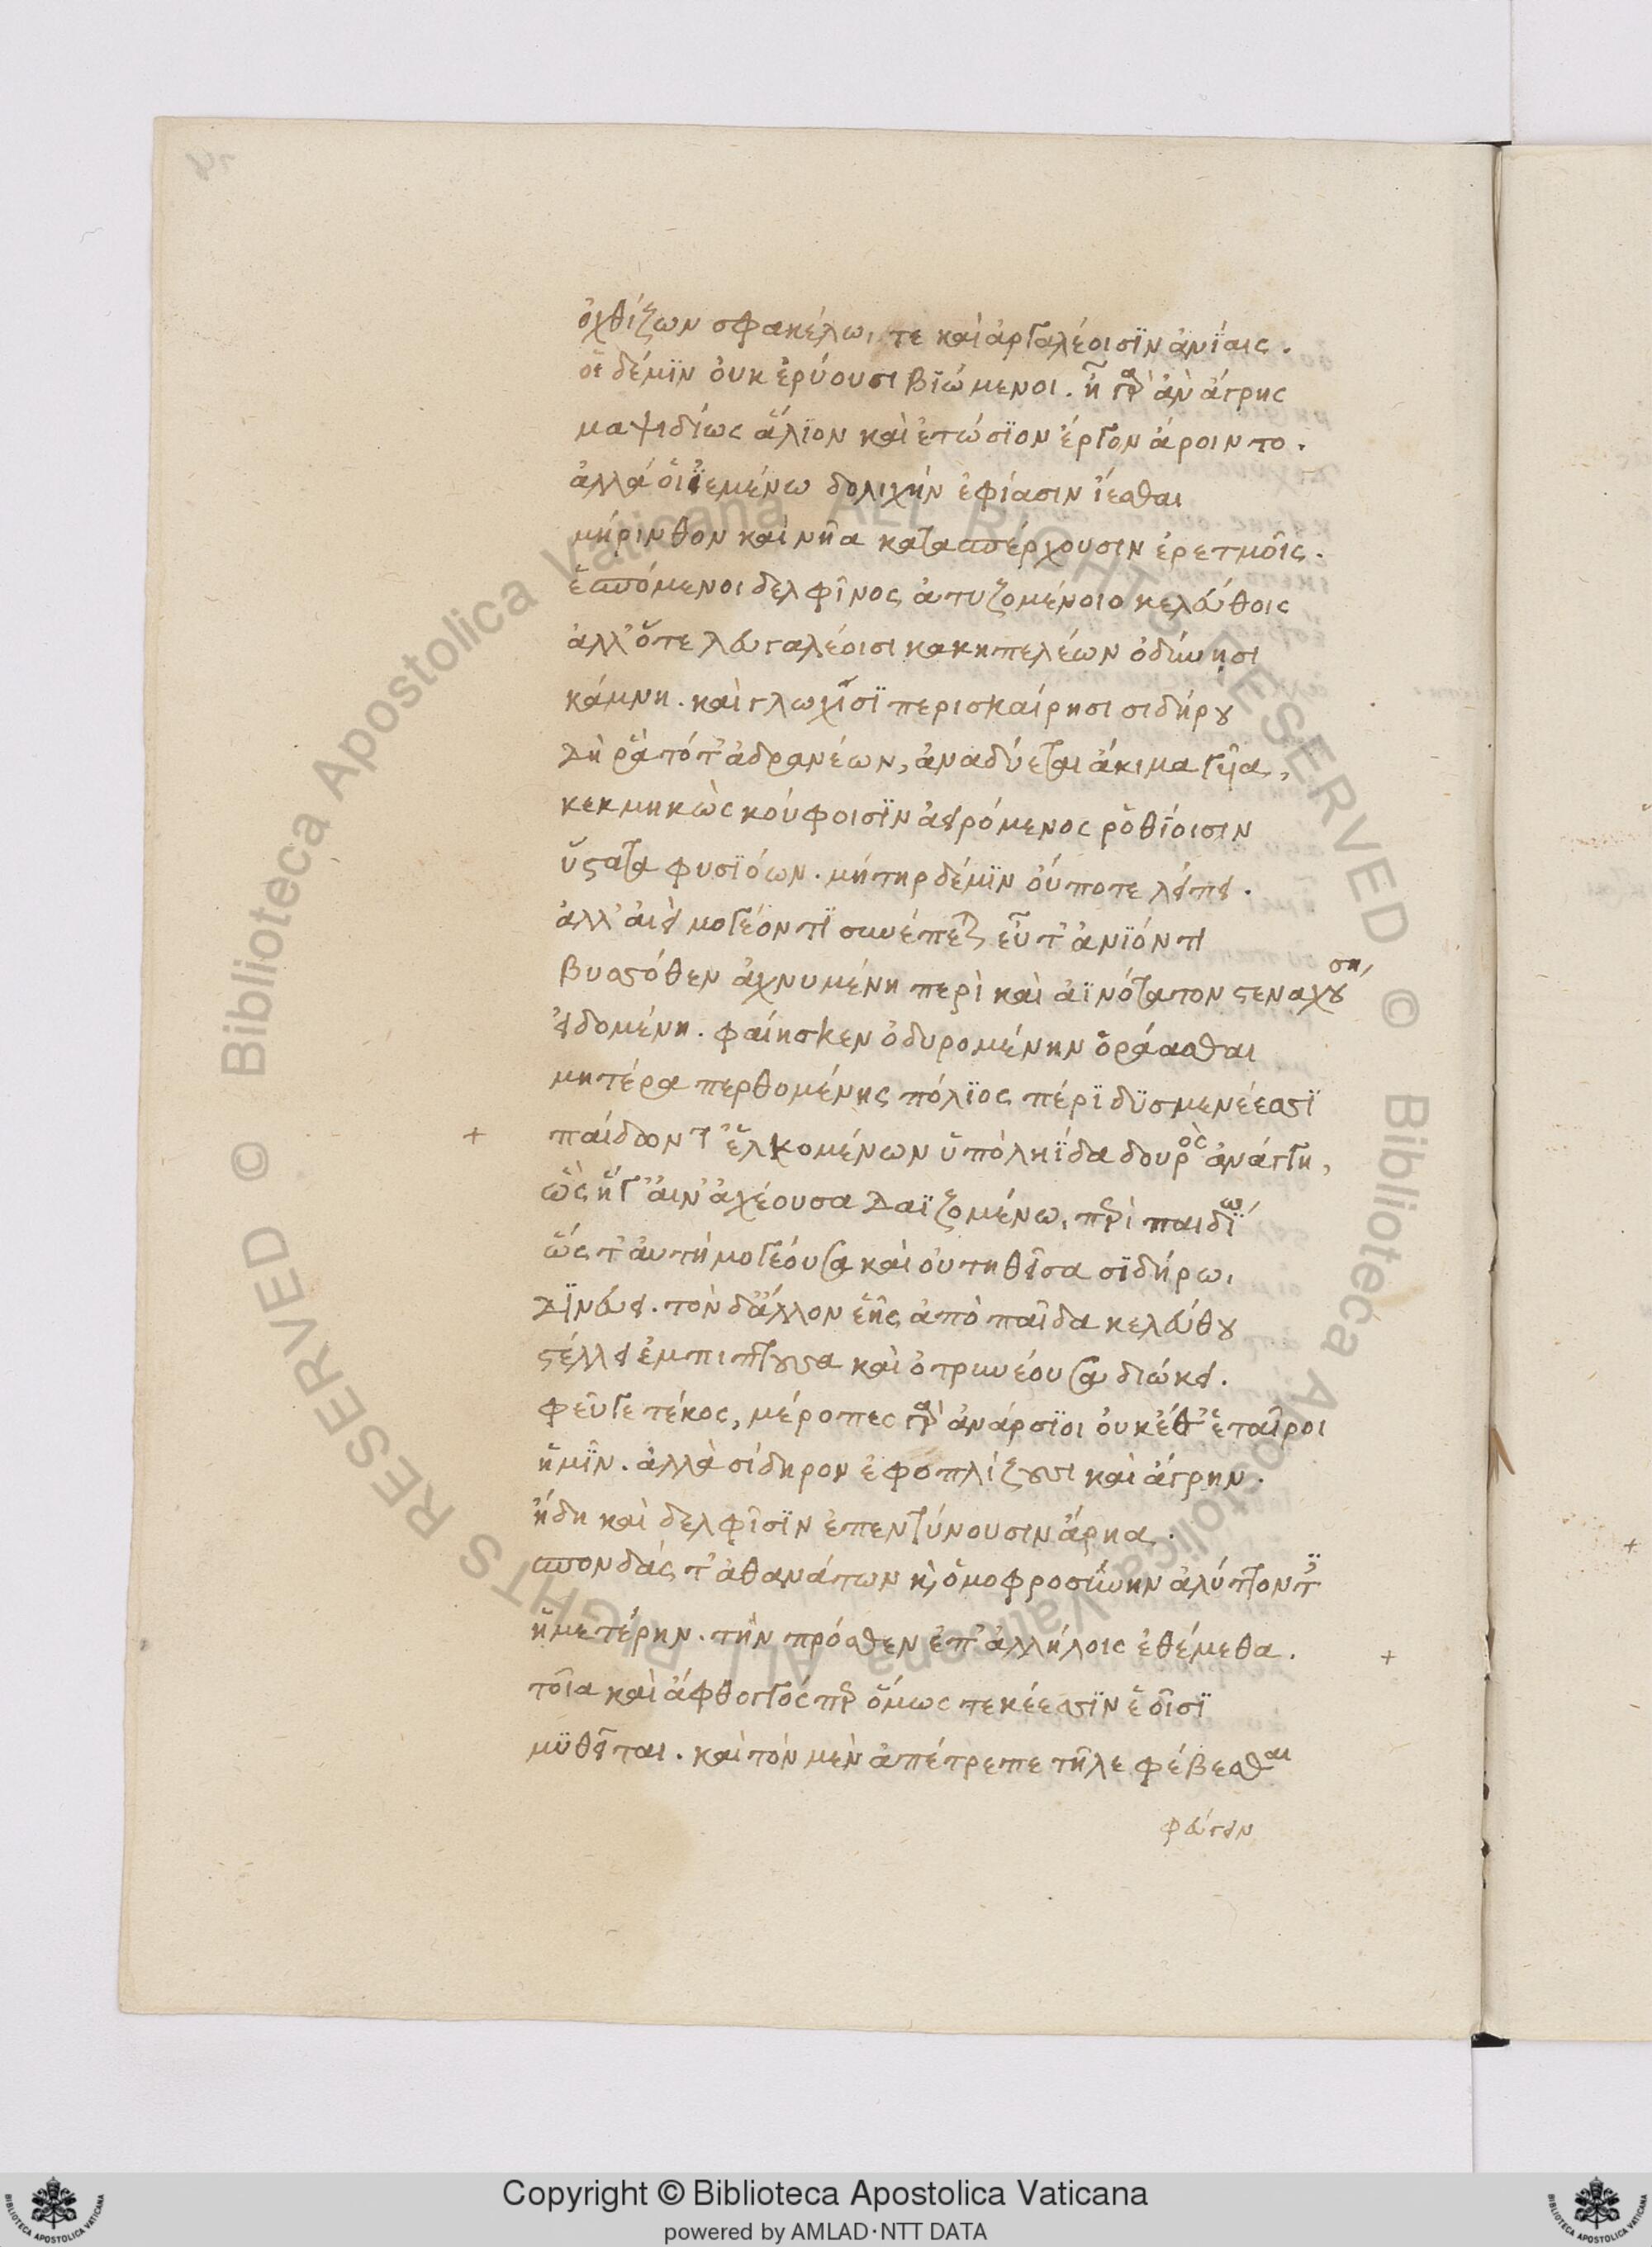 ὀχθίζων σφακέλωι τε καὶ ἀργαλέοισϊν ἀνΐαις.
οἵ δέμϊν οὐκ ἐρύουσι βϊώμενοι. ἦ γὰρ ἂν ἄγρης
μαψιδίως ἅλϊον καὶ ἐτώσϊον ἔργον ἄροιντο.
ἀλλά οἱ ἱεμένω δολιχὴν ἐφίασιν ἵεσθαι
μήρινθον καὶ νῆα κατασπέρχουσιν ἐρετμοῖς.
ἑσπόμενοι δελφῖνος ἀτυζομένοιο κελεύθοις
ἀλλ' ὅτε λευγαλέοισι κακηπελέων ὀδύνησι
κάμνη. καὶ γλωχῖσϊ περισκαίρησι σιδήρου
δὴ ῥὰ τότ' ἀδρανέων, ἀναδύεται ἄκιμα γυῖα,
κεκμηκὼς κούφοισϊν ἀειρόμενος ῥοθΐοισιν
ὕστατα φυσϊόων. μήτηρ δέμϊν οὔποτε λείπει.
ἀλλ' αἰεὶ μογέοντϊ συνέπεται εὖτ' ἀνϊόντι
βυσσόθεν ἀχνυμένη περὶ καὶ αἰνότατον στεναχούση,
εἰδομένη. φαίησκεν ὀδυρομένην ὁράασθαι
μητέρα περθομένης πόλϊος πέρϊ δϋσμενέεσσϊ
παίδοντ' ἑλκομένων ὑπὸ ληΐδα δουρὸς ἀνάγκη,
ὣς ἥγ' αἰν' ἀχέουσα δαϊζομένωι περὶ παιδΐω
ὥς τ' αὐτὴ μογέουσα καὶ οὐτηθεῖσα σϊδήρωι
δϊνεύει. τὸν δ' ἄλλον ἑῆς ἀπὸ παῖδα κελεύθου
στέλλει ἐμπιπτουσα καὶ ὀτρυνέουσα διώκει.
φεῦγε τέκος, μέροπες γὰρ ἀνάρσϊοι οὐκέθ' ἑταῖροι
ἡμῖν. ἀλλὰ σίδηρον ἐφοπλίζουσι καὶ ἄγρην.
ἤδη καὶ δελφῖσϊν ἐπεντύνουσιν ἄρηα.
σπονδάς τ' ἀθανάτων καὶ ὁμοφροσύνην ἀλύπτοντϊ
ἡμετέρην. τὴν πρόσθεν ἐπ' ἀλλήλοις ἐθέμεθα.
τοῖα καὶ ἄφθογγός περ ὅμως τεκέεσσϊν ἑοῖσϊ
μϋθεῖται. καὶ τὸν μὲν ἀπέτρεπε τῆλε φέβεσθαι
φεύγειν
Copyright © Biblioteca Apostolica Vaticana
powered by AMLAD·NTT DATA